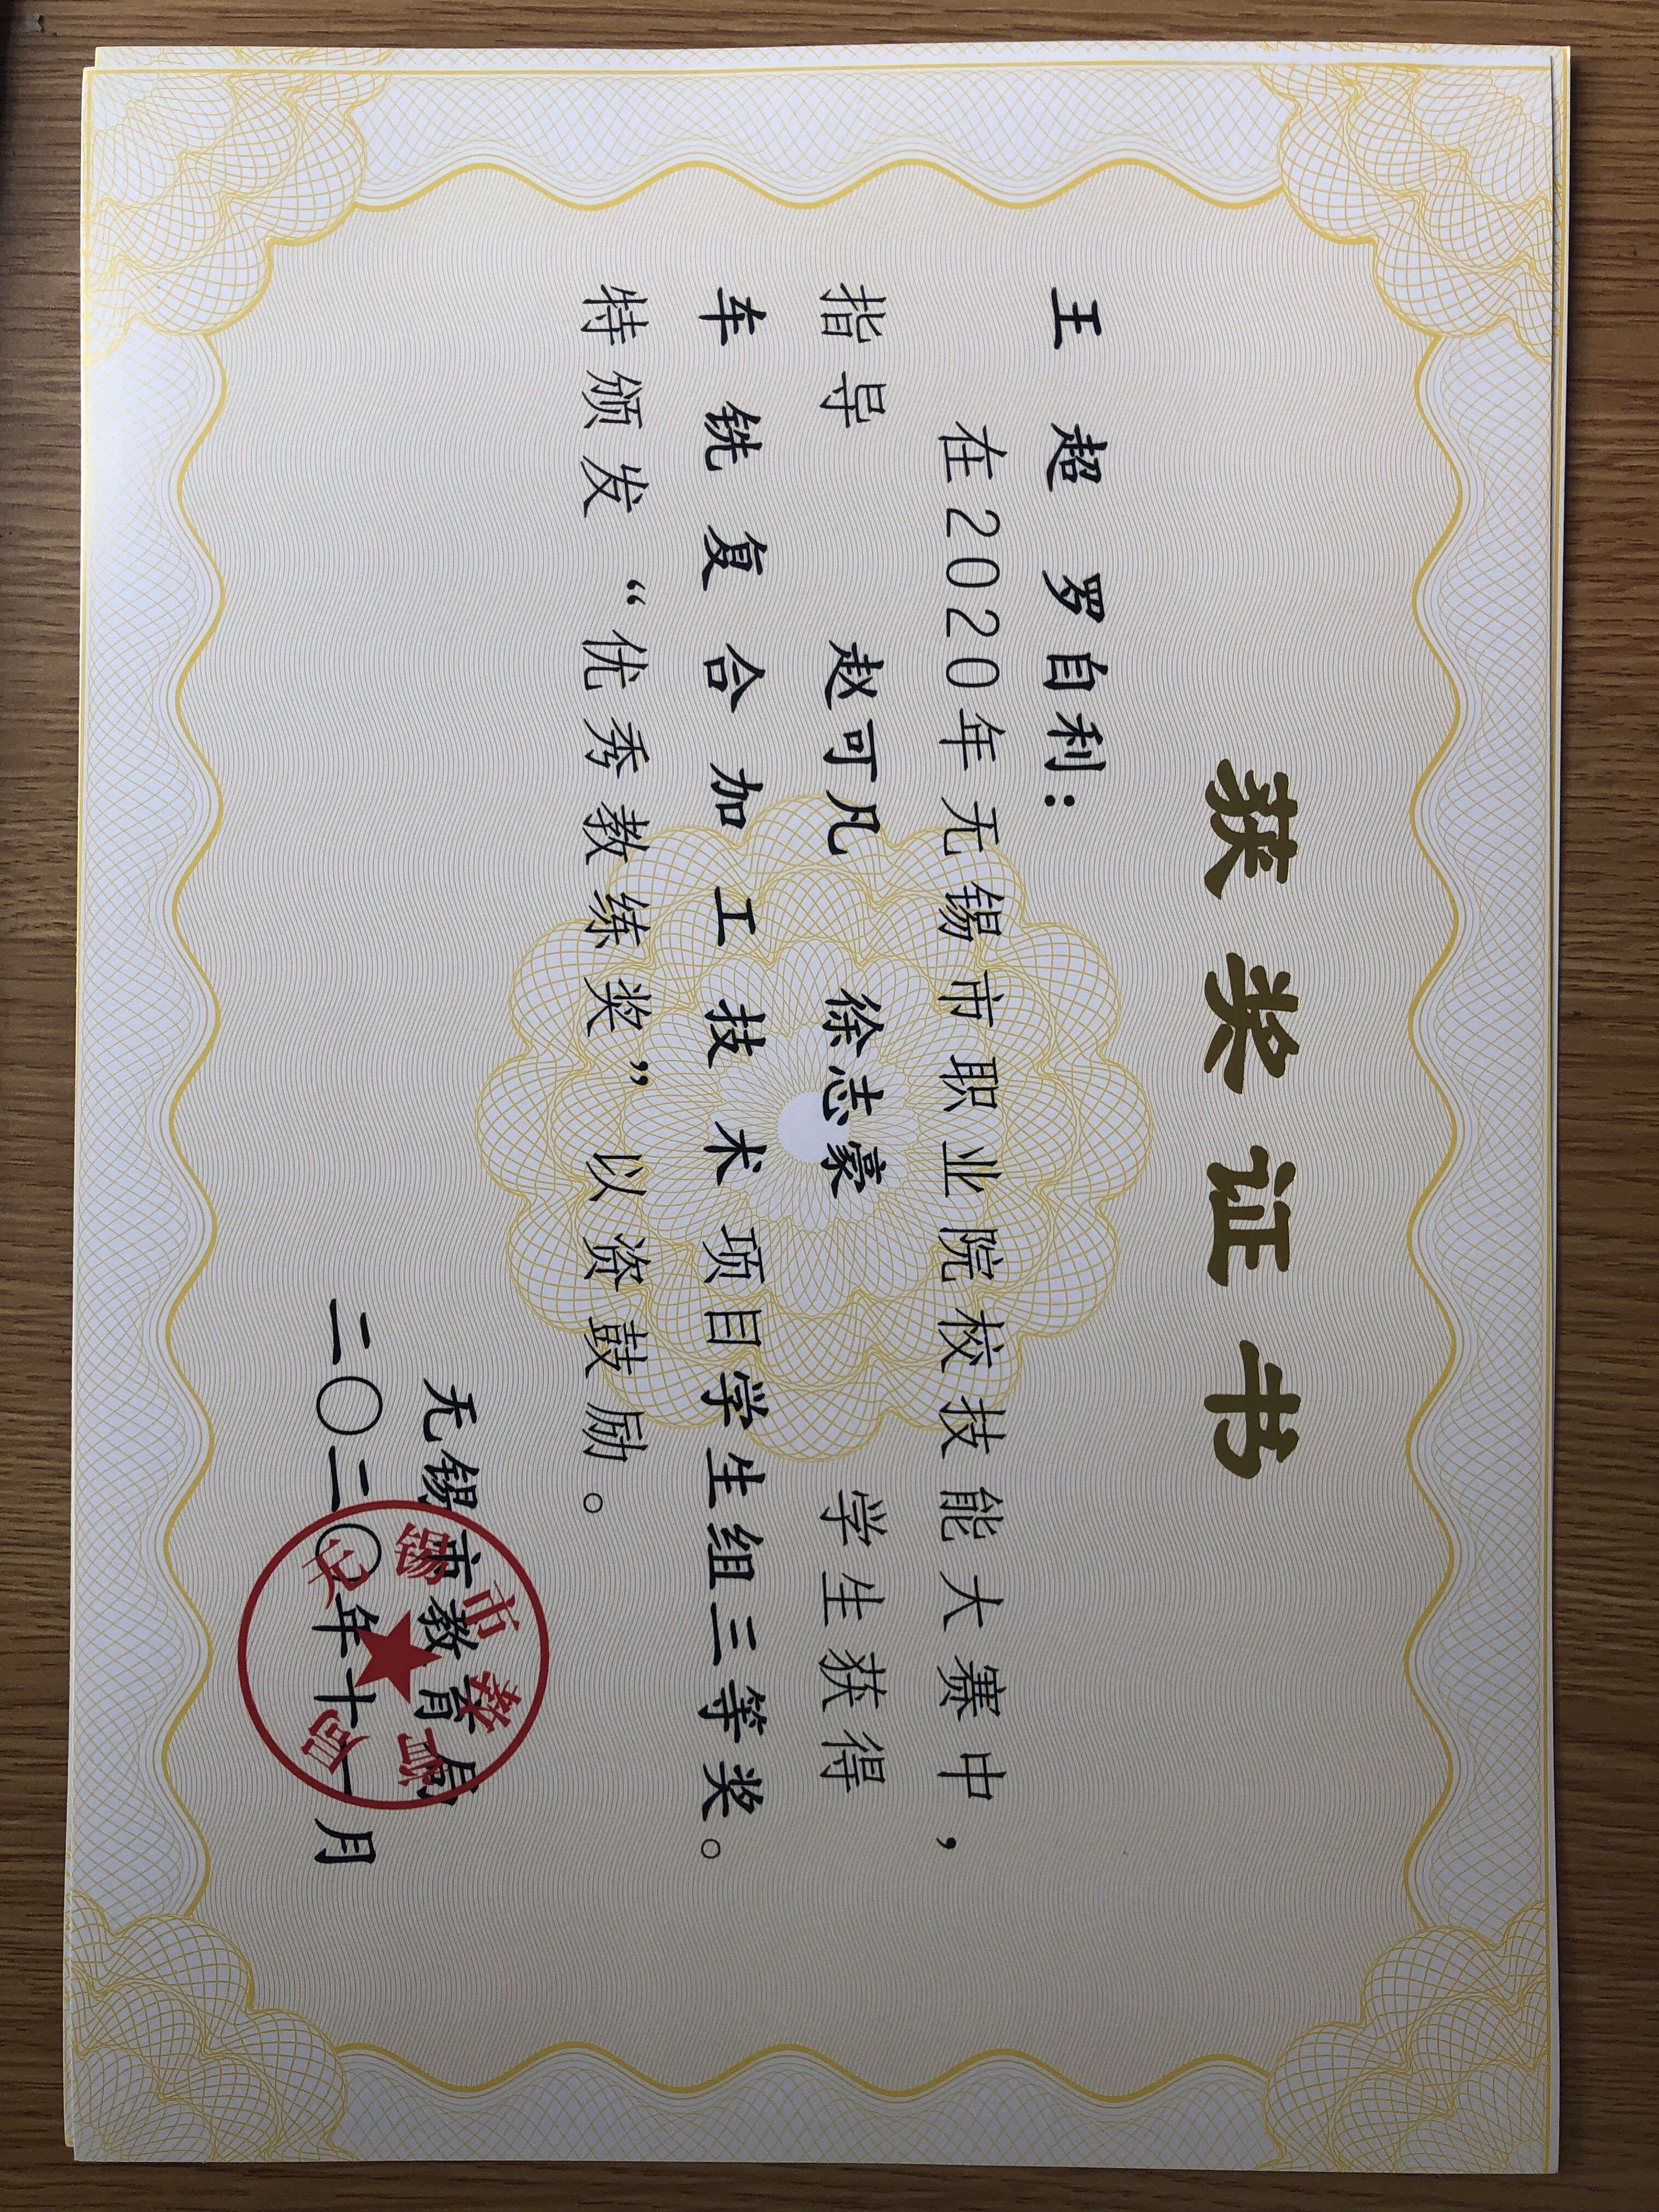 获奖证书
王 超 罗自利：
在2020年无锡市职业院校技能大赛中，
指导 赵可凡 徐志豪 学生获得
车铣复合加工技术项目学生组三等奖。
特颁发“优秀教练奖”以资鼓励。
无锡市教育局
二〇二〇年十一月
无锡市教育局